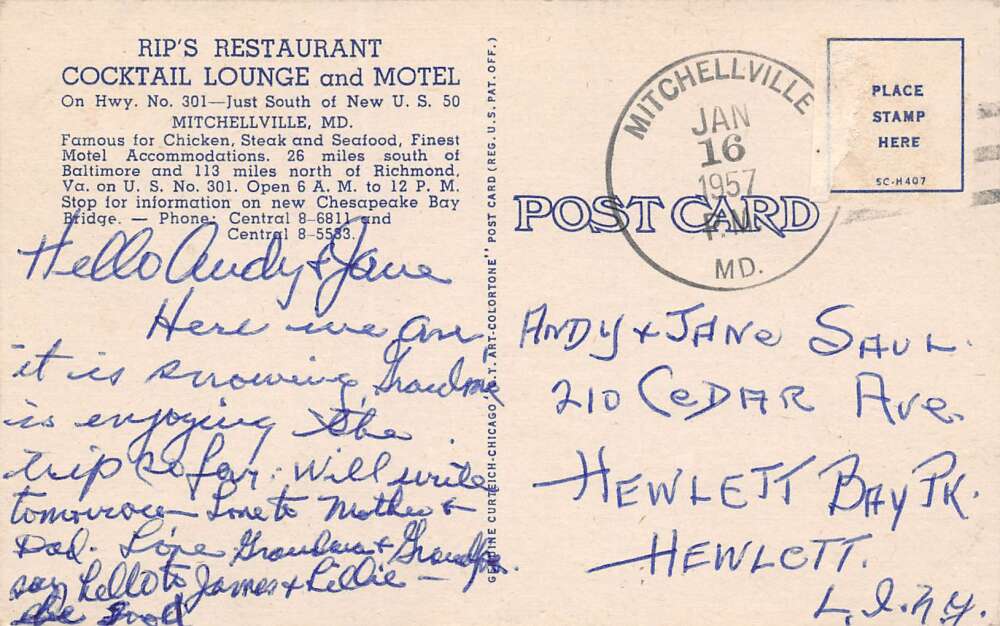 RIP'S RESTAURANT
COCKTAIL LOUNGE and MOTEL
On Hwy. No. 301—Just South of New U. S. 50
MITCHELLVILLE, MD.
Famous for Chicken, Steak and Seafood, Finest
Motel Accommodations. 26 miles south of
Baltimore and 113 miles north of Richmond,
Va. on U. S. No. 301. Open 6 A. M. to 12 P. M.
Stop for information on new Chesapeake Bay
Bridge. — Phone: Central 8-6811 and
Central 8-5583.
Hello Andy & Jane
Here we are
it is snowing, Grandma
is enjoying the
trip so far. Will write
tomorrow — Love to Mother &
Dad. Love Grandma & Grandpa.
say hello to James & Lillie —
be good
GENUINE CURTEICH-CHICAGO "C.T. ART-COLORTONE" POST CARD (REG. U. S. PAT. OFF.)
MITCHELLVILLE
JAN
16
1957
P.M.
MD.
PLACE
STAMP
HERE
5C-H407
POST CARD
ANDY & JANE SAUL.
210 CEDAR AVE.
HEWLETT BAY PK.
HEWLETT.
L.I.N.Y.